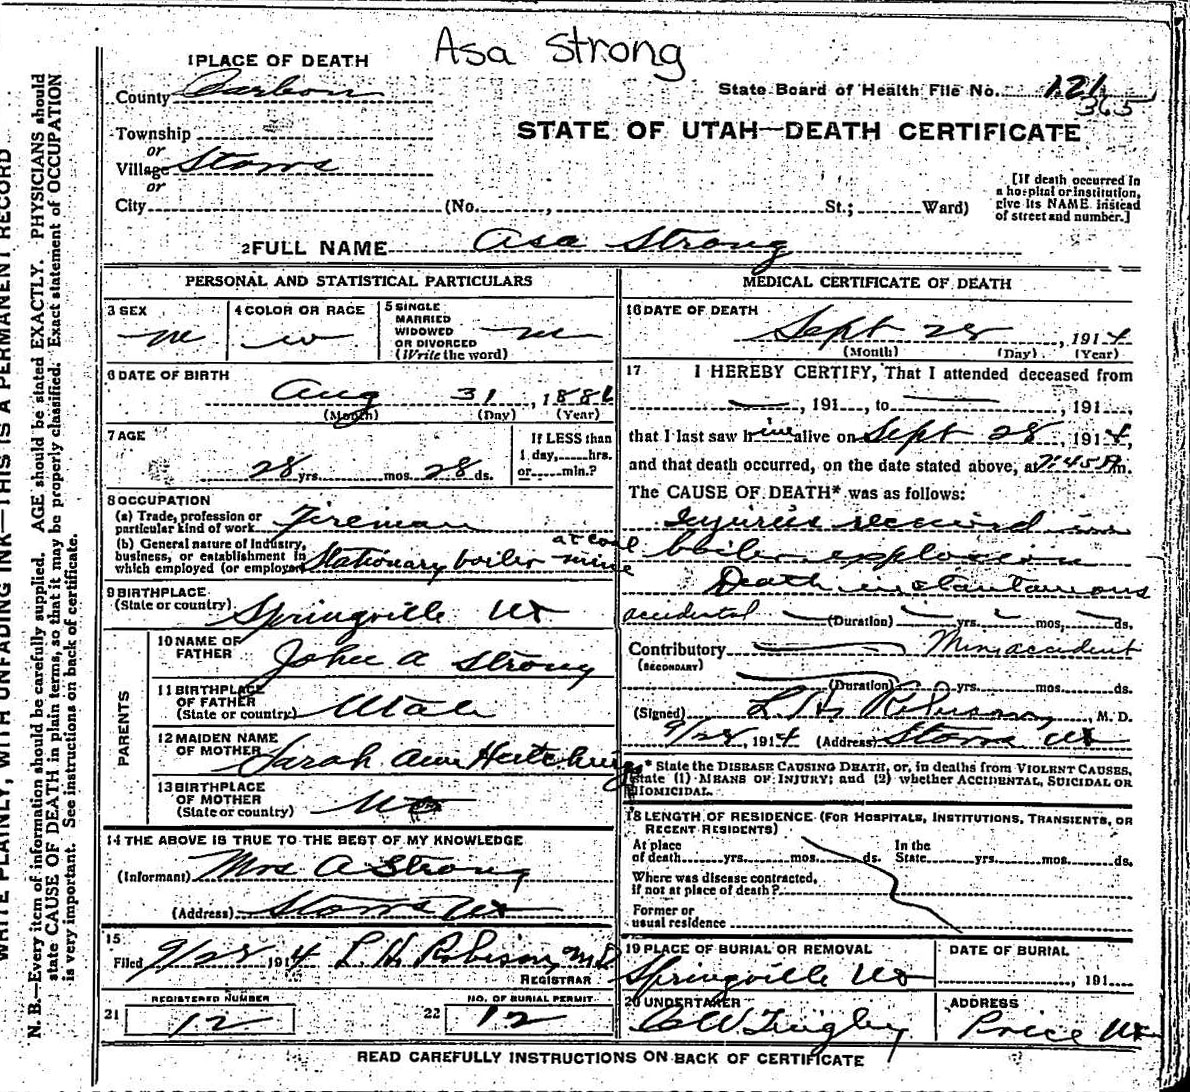 Asa Strong
1 PLACE OF DEATH
County Carbon
State Board of Health File No. 121
365
Township
or
STATE OF UTAH—DEATH CERTIFICATE
Village Storrs
or
[If death occurred in a hospital or institution, give its NAME instead of street and number.]
City (No. , St.; Ward)
2 FULL NAME Asa Strong
PERSONAL AND STATISTICAL PARTICULARS
3 SEX m
4 COLOR OR RACE w
5 SINGLE MARRIED WIDOWED OR DIVORCED (Write the word) m
6 DATE OF BIRTH
Aug 31, 1886
(Month) (Day) (Year)
7 AGE
28 yrs. mos. 28 ds.
If LESS than 1 day, hrs. or min.?
8 OCCUPATION
(a) Trade, profession or particular kind of work Fireman
(b) General nature of Industry, business, or establishment in which employed (or employer) Stationary boiler at coal mine
9 BIRTHPLACE
(State or country) Springville Ut
PARENTS
10 NAME OF FATHER John A Strong
11 BIRTHPLACE OF FATHER (State or country) Utah
12 MAIDEN NAME OF MOTHER Sarah Ann Hutchings
13 BIRTHPLACE OF MOTHER (State or country)
14 THE ABOVE IS TRUE TO THE BEST OF MY KNOWLEDGE
(Informant) Mrs A Strong
(Address) Storrs Ut
15
Filed 9/28 1914 L. H. Robison, MD
REGISTRAR
21 REGISTERED NUMBER 12
22 NO. OF BURIAL PERMIT 12
MEDICAL CERTIFICATE OF DEATH
16 DATE OF DEATH
Sept 28, 1914
(Month) (Day) (Year)
17 I HEREBY CERTIFY, That I attended deceased from
, 191 , to , 191 ,
that I last saw him alive on Sept 28, 1914,
and that death occurred, on the date stated above, at 7:45 m.
The CAUSE OF DEATH* was as follows:
Injuries received in
boiler explosion
Death instantaneous
accidental (Duration) yrs. mos. ds.
Contributory Mine accident
(SECONDARY)
(Duration) yrs. mos. ds.
(Signed) L. H. Robison, M. D.
9/28, 1914 (Address) Storrs Ut
* State the DISEASE CAUSING DEATH, or, in deaths from VIOLENT CAUSES,
state (1) MEANS OF INJURY; and (2) whether ACCIDENTAL, SUICIDAL OR
HOMICIDAL.
18 LENGTH OF RESIDENCE (FOR HOSPITALS, INSTITUTIONS, TRANSIENTS, OR
RECENT RESIDENTS)
At place of death yrs. mos. ds. In the State yrs. mos. ds.
Where was disease contracted,
if not at place of death?
Former or
usual residence
19 PLACE OF BURIAL OR REMOVAL
Springville Ut
DATE OF BURIAL
, 191
20 UNDERTAKER
ADDRESS
Price Ut
READ CAREFULLY INSTRUCTIONS ON BACK OF CERTIFICATE
WRITE PLAINLY, WITH UNFADING INK—THIS IS A PERMANENT RECORD
N. B.—Every item of information should be carefully supplied. AGE should be stated EXACTLY. PHYSICIANS should
state CAUSE OF DEATH in plain terms, so that it may be properly classified. Exact statement of OCCUPATION
is very important. See instructions on back of certificate.